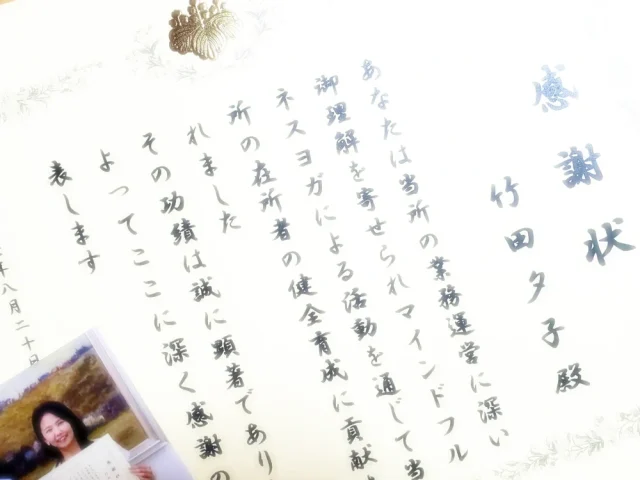 感謝状
竹田夕子殿
あなたは当所の業務運営に深い
御理解を寄せられマインドフル
ネスヨガによる活動を通じて当
所の在所者の健全育成に貢献
れました
その功績は誠に顕著であり
よってここに深く感謝の
表します
年八月二十日